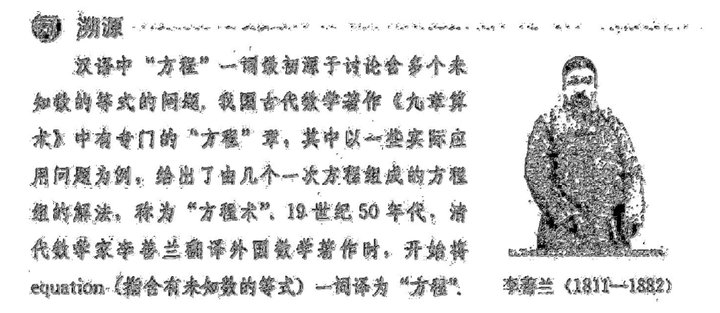 溯源
汉语中“方程”一词最初源于讨论含多个未
知数的等式的问题.我国古代数学著作《九章算
术》中有专门的“方程”章,其中以一些实际应
用问题为例,给出了由几个一次方程组成的方程
组的解法,称为“方程术”.19世纪50年代,清
代数学家李善兰翻译外国数学著作时,开始将
equation(指含有未知数的等式)一词译为“方程”.
李善兰(1811—1882)